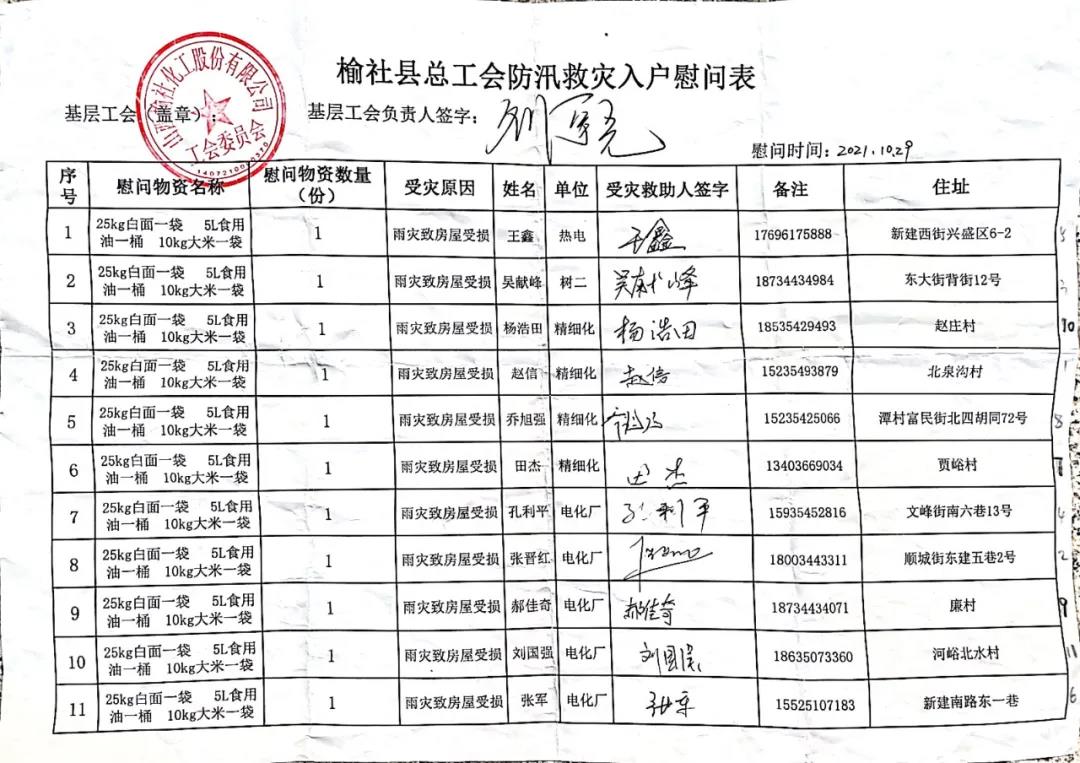 榆社县总工会防汛救灾入户慰问表
基层工会（盖章）： 基层工会负责人签字：
慰问时间：2021.10.29
山西榆社化工股份有限公司
工会委员会
序号 慰问物资名称 慰问物资数量（份） 受灾原因 姓名 单位 受灾救助人签字 备注 住址
1 25kg白面一袋 5L食用油一桶 10kg大米一袋 1 雨灾致房屋受损 王鑫 热电 王鑫 17696175888 新建西街兴盛区6-2
2 25kg白面一袋 5L食用油一桶 10kg大米一袋 1 雨灾致房屋受损 吴献峰 树二 吴献峰 18734434984 东大街背街12号
3 25kg白面一袋 5L食用油一桶 10kg大米一袋 1 雨灾致房屋受损 杨浩田 精细化 杨浩田 18535429493 赵庄村 10
4 25kg白面一袋 5L食用油一桶 10kg大米一袋 1 雨灾致房屋受损 赵信 精细化 赵信 15235493879 北泉沟村 1
5 25kg白面一袋 5L食用油一桶 10kg大米一袋 1 雨灾致房屋受损 乔旭强 精细化 15235425066 潭村富民街北四胡同72号 8
6 25kg白面一袋 5L食用油一桶 10kg大米一袋 1 雨灾致房屋受损 田杰 精细化 田杰 13403669034 贾峪村
7 25kg白面一袋 5L食用油一桶 10kg大米一袋 1 雨灾致房屋受损 孔利平 电化厂 孔利平 15935452816 文峰街南六巷13号 4
8 25kg白面一袋 5L食用油一桶 10kg大米一袋 1 雨灾致房屋受损 张晋红 电化厂 18003443311 顺城街东建五巷2号 2
9 25kg白面一袋 5L食用油一桶 10kg大米一袋 1 雨灾致房屋受损 郝佳奇 电化厂 郝佳奇 18734434071 廉村 9
10 25kg白面一袋 5L食用油一桶 10kg大米一袋 1 雨灾致房屋受损 刘国强 电化厂 刘国强 18635073360 河峪北水村 11
11 25kg白面一袋 5L食用油一桶 10kg大米一袋 1 雨灾致房屋受损 张军 电化厂 张军 15525107183 新建南路东一巷 6